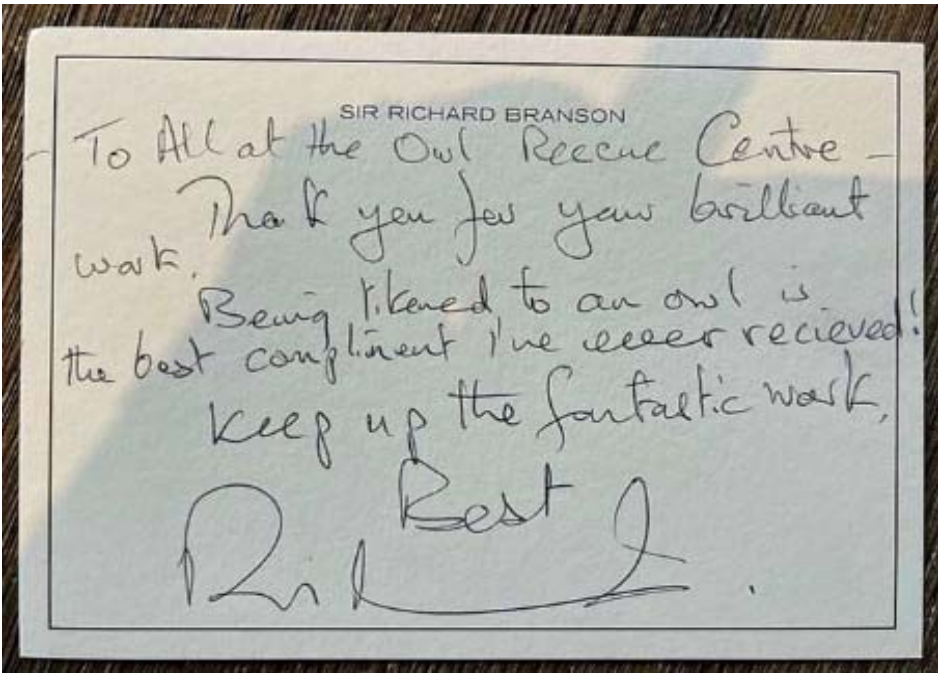 SIR RICHARD BRANSON
- To All at the Owl Rescue Centre -
Thank you for your brilliant
work.
Being likened to an owl is
the best compliment I've ever recieved!
Keep up the fantastic work,
Best
Richard